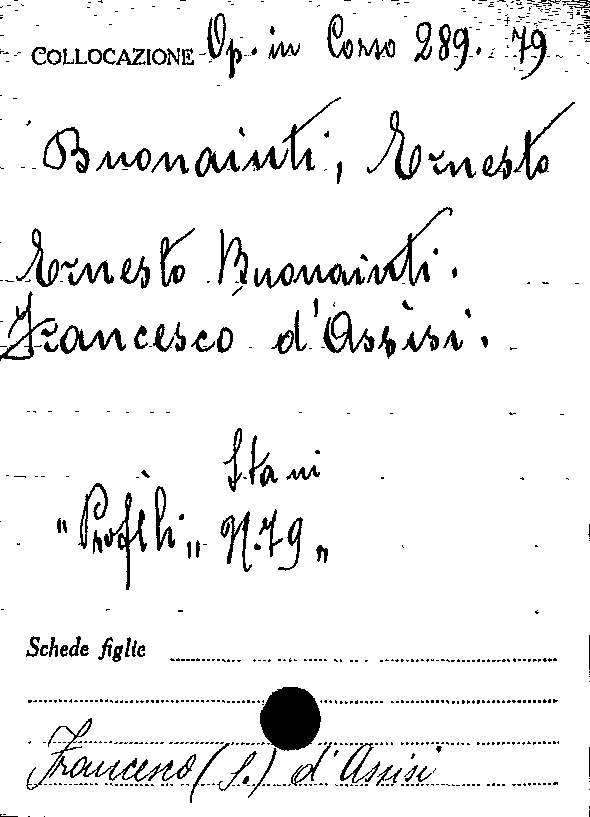 COLLOCAZIONE Op. in Corso 289. 79
Buonaiuti, Ernesto
Ernesto Buonaiuti.
Francesco d'Assisi.
"Profili" N. 79"
Schede figlie
Francesco (S.) d'Assisi